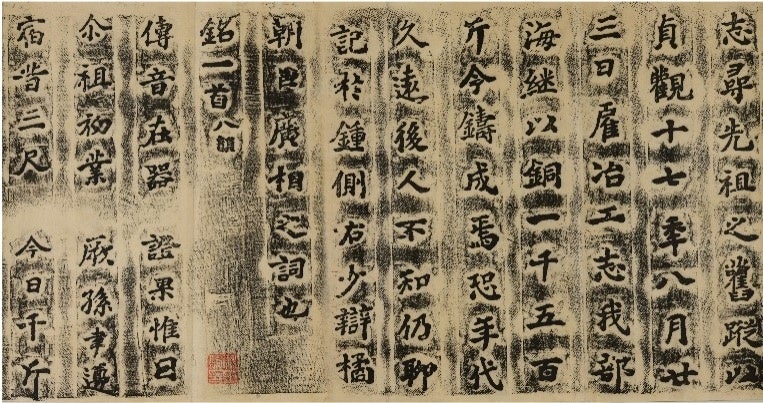 志尋先祖之舊蹤以
貞觀十七季八月廿
三日雇冶工志我部
海継以銅一千五百
斤令鑄成焉恐年代
久遠後人不知仍聊
記於鍾側右少辯橘
朝臣廣相之詞也
銘一首八韻
傳音在器 證果惟因
尒祖初業 厥孫聿遵
宿昔三尺 今日千斤